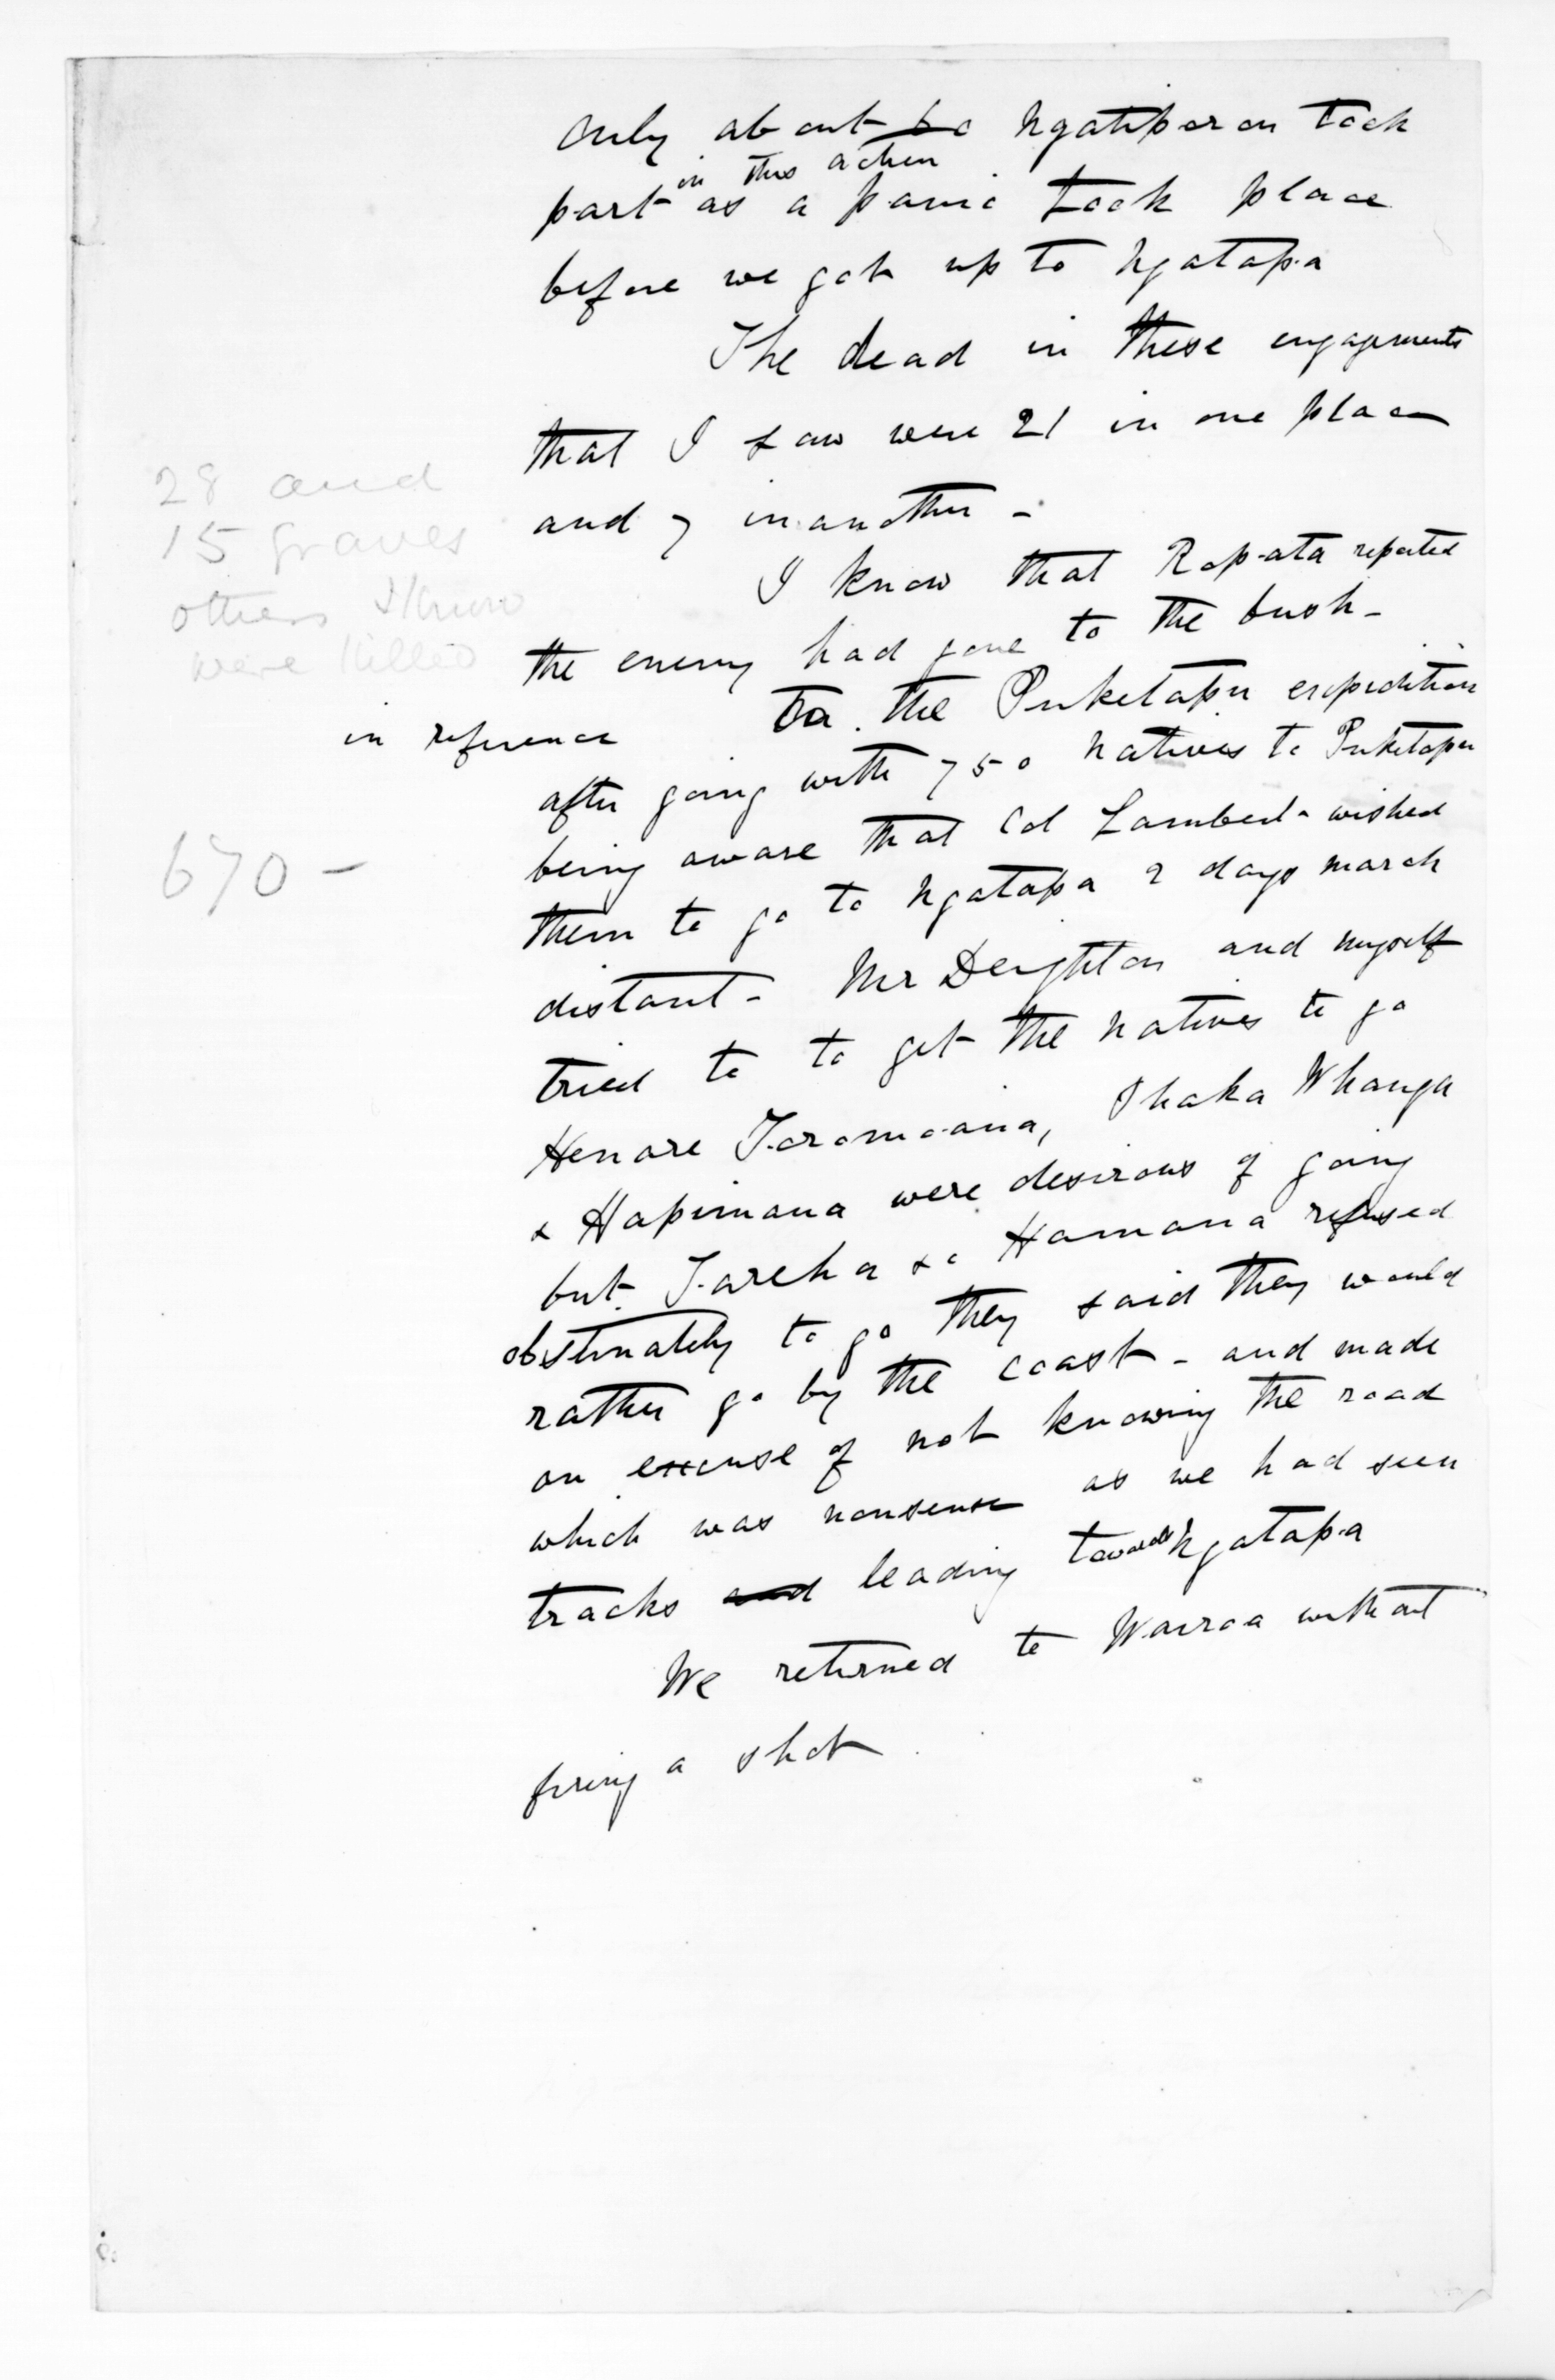 only about 60 Ngatiporou took
in this action
part as a panic took place
before we got up to Ngatapa
The dead in these engagements
that I saw were 21 in one place
and 7 in another -
28 and
15 graves
others I know
were killed
I know that Ropata reported
the enemy had gone to the bush -
in reference to the Puketapu expedition
after going with 750 natives to Puketapu
being aware that Col Lambert wished
670 -
them to go to Ngatapa 2 days march
distant - Mr Deighton and myself
tried to to get the natives to go
Henare Tomoana, Ihaka Whanga
& Hapimana were desirous of going
but Tareha & Hamana refused
obstinately to go they said they would
rather go by the coast - and made
an excuse of not knowing the road
which was nonsense as we had seen
tracks and leading towards Ngatapa
We returned to Wairoa without
firing a shot